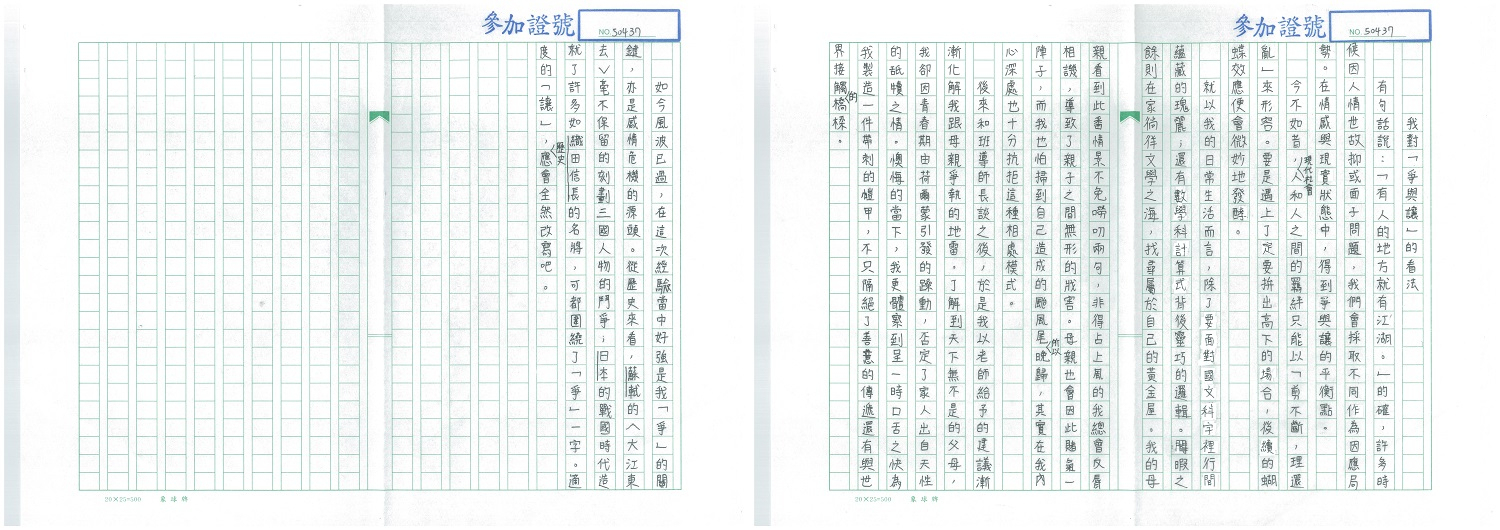 參加證號
NO. 50437
我對「爭與讓」的看法
有句話說：「有人的地方就有江湖。」的確，許多時
候因人情世故抑或面子問題，我們會採取不同作為因應局
勢。在情感與現實狀態中，得到爭與讓的平衡點。
今不如昔，現代社會人和人之間的羈絆只能以「剪不斷，理還
亂」來形容。要是遇上了定要拚出高下的場合，後續的蝴
蝶效應便會微妙地發酵。
就以我的日常生活而言，除了要面對國文科字裡行間
蘊藏的瑰麗；還有數學科計算式背後靈巧的邏輯。閒暇之
餘則在家徜徉文學之海，找尋屬於自己的黃金屋。我的母
親看到此番情景不免嘮叨兩句，非得占上風的我總會反脣
相譏，導致了親子之間無形的戕害。母親也會因此賭氣一
陣子，而我也怕掃到自己造成的颱風尾所以晚歸，其實在我內
心深處也十分抗拒這種相處模式。
後來和班導師長談之後，於是我以老師給予的建議漸
漸化解我跟母親爭執的地雷。了解到天下無不是的父母，
我卻因青春期由荷爾蒙引發的躁動，否定了家人出自天性
的舐犢之情。懊悔的當下，我更體察到呈一時口舌之快為
我製造一件帶刺的鎧甲，不只隔絕了善意的傳遞還有與世
界接觸的橋樑。
20×25=500 象球牌
參加證號
NO. 50437
如今風波已過，在這次經驗當中好強是我「爭」的關
鍵，亦是感情危機的源頭。從歷史來看，蘇軾的〈大江東
去〉毫不保留的刻劃三國人物的鬥爭；日本的戰國時代造
就了許多如織田信長的名將，可都圍繞了「爭」一字。適
度的「讓」，歷史應會全然改寫吧。
20×25=500 象球牌